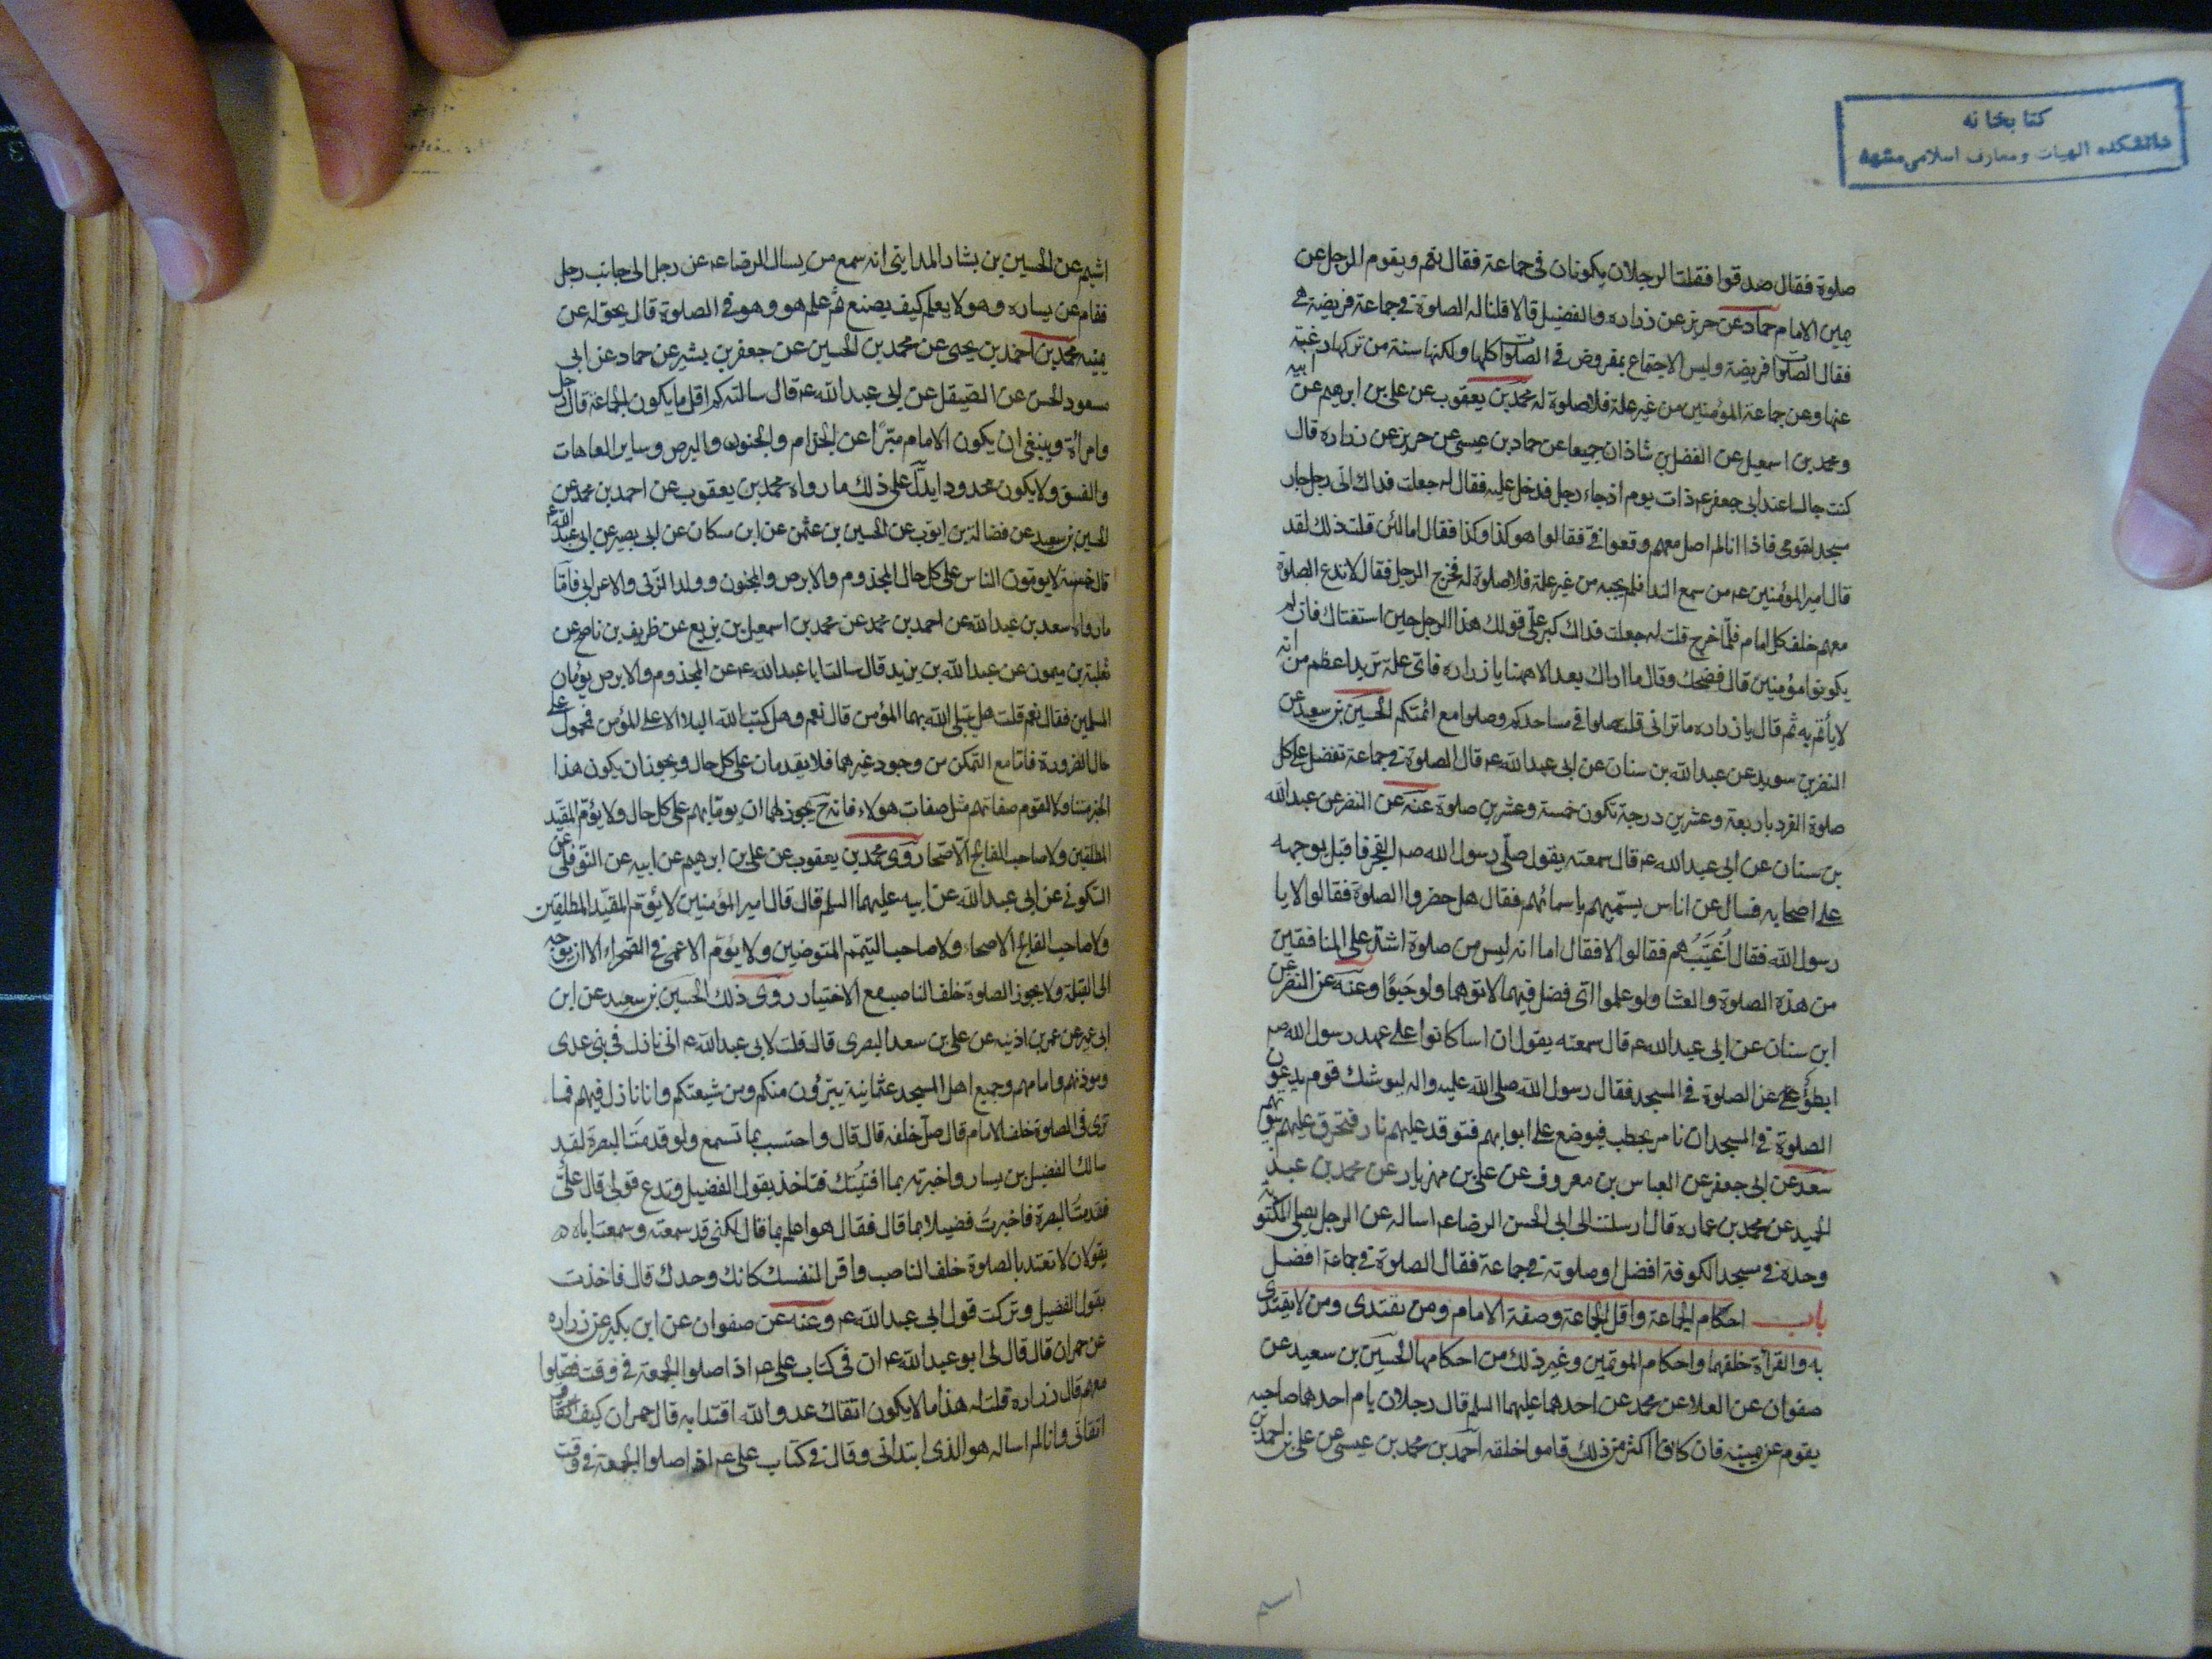 كتابخانه
دانشكده الهيات و معارف اسلامى مشهد
صلوة فقال صدقوا فقلت الرجلان يكونان فى جماعة فقال نعم ويقوم الرجل عن
يمين الامام حماد عن حريز عن زراره والفضيل قالا قلنا له الصلوة فى جماعة فريضة هى
فقال الصلوات فريضة وليس الاجتماع بمفروض فى الصلوات كلها ولكنها سنة من تركها رغبة
عنها وعن جماعة المؤمنين من غير علة فلا صلوة له محمد بن يعقوب عن على بن ابرهيم عن ابيه
ومحمد بن اسمعيل عن الفضل بن شاذان جميعا عن حماد بن عيسى عن حريز عن زراره قال
كنت جالسا عند ابى جعفر ع ذات يوم اذ جاء رجل فدخل عليه فقال له جعلت فداك انى رجل جار
مسجد لقومى فاذا انا لم اصل معهم وقعوا فى فقالوا هو كذا وكذا فقال اما لئن قلت ذلك لقد
قال امير المؤمنين ع من سمع الندا فلم يجبه من غير علة فلا صلوة له فخرج الرجل فقال لا تدع الصلوة
معهم خلف كل امام فلما خرج قلت له جعلت فداك كبر على قولك هذا الرجل حين استفتاك فان لم
يكونوا مؤمنين قال فضحك وقال ما اراك بعد الا ههنا يا زراره فاى علة تريد اعظم من انه
لا يأتم به ثم قال يا زراره ما ترانى قلت صلوا فى مساجدكم وصلوا مع ائمتكم الحسين بن سعيد عن
النضر بن سويد عن عبد الله بن سنان عن ابى عبد الله ع قال الصلوة فى جماعة تفضل على كل
صلوة الفرد باربعة وعشرين درجة تكون خمسة وعشرين صلوة عنه عن النضر عن عبد الله
بن سنان عن ابى عبد الله ع قال سمعته يقول صلى رسول الله ص الفجر فاقبل بوجهه
على اصحابه فسال عن اناس يسميهم باسمائهم فقال هل حضروا الصلوة فقالوا لا يا
رسول الله فقال أغيّب هم فقالوا لا فقال اما انه ليس من صلوة اشد على المنافقين
من هذه الصلوة والعشا ولو علموا اى فضل فيهما لاتوهما ولو حبوًا وعنه عن النضر عن
ابن سنان عن ابى عبد الله ع قال سمعته يقول ان اساكانوا على عهد رسول الله ص
ابطؤ على عن الصلوة فى المسجد فقال رسول الله صلى الله عليه واله ليوشك قوم يدعون
الصلوة فى المسجد ان نامر بحطب فيوضع على ابوابهم فتوقد عليهم نار فتحرق عليهم بيوتهم
سعد عن ابى جعفر عن العباس بن معروف عن على بن مهزيار عن محمد بن عبد
الحميد عن محمد بن عماره قال ارسلت الى ابى الحسن الرضا ع اساله عن الرجل يصلى المكتوبة
وحده فى مسجد الكوفة افضل او صلوته فى جماعة فقال الصلوة فى جماعة افضل
باب احكام الجماعة واقل الجماعة وصفة الامام ومن يقتدى ومن لا يقتدى
به والقرأة خلفهما واحكام الموتمين وغير ذلك من احكامها الحسين بن سعيد عن
صفوان عن العلا عن محمد عن احدهما عليهما السلم قال رجلان يام احدهما صاحبه
يقوم عن يمينه فان كانوا اكثر من ذلك قاموا خلفه احمد بن محمد بن عيسى عن على بن احمد بن
اشيم
اشيم عن الحسين بن بشار المداينى انه سمع من يسال الرضا ع عن رجل الى جانب رجل
فقام عن يساره وهو لا يعلم كيف يصنع ثم علم هو وهو فى الصلوة قال يحوله عن
يمينه محمد بن احمد بن يحيى عن محمد بن الحسين عن جعفر بن بشير عن حماد عن ابى
مسعود الحسن عن الصيقل عن ابى عبد الله ع قال سالته كم اقل ما يكون الجماعة قال رجل
وامرأة وينبغى ان يكون الامام مبرّاً عن الجذام والجنون والبرص وساير العاهات
والفسق ولا يكون محدودا يدلّ على ذلك ما رواه محمد بن يعقوب عن احمد بن محمد عن
الحسين بن سعيد عن فضالة بن ايوب عن الحسين بن عثمن عن ابن مسكان عن ابى بصير عن ابى عبد الله ع
قال خمسة لا يومون الناس على كل حال المجذوم والابرص والمجنون وولد الزنى والاعرابى فاما
ما رواه سعد بن عبد الله عن احمد بن محمد عن محمد بن اسمعيل بن بزيع عن ظريف بن ناصح عن
ثعلبة بن ميمون عن عبد الله بن يزيد قال سالت ابا عبد الله ع عن المجذوم والابرص يؤمان
المسلمين فقال نعم قلت هل يبتلى الله بهما المؤمن قال نعم وهل كتب الله البلا الا على المؤمن فمحمول على
حال الضرورة فاما مع التمكن من وجود غيرهما فلا يقدمان على كل حال ويجوز ان يكون هذا
الخبر متناولا لقوم صفاتهم مثل صفات هولاء فانه ح يجوز لهما ان يوما بهم على كل حال ولا يؤم المقيد
المطلقين ولا صاحب الفالج الاصحا روى محمد بن يعقوب عن على بن ابرهيم عن ابيه عن النوفلى عن
السكونى عن ابى عبد الله عن ابيه عليهما السلم قال قال امير المؤمنين لا يؤم المقيد المطلقين
ولا صاحب الفالج الاصحاء ولا صاحب التيمم المتوضين ولا يؤم الاعمى فى الصحراء الا ان يوجه
الى القبلة ولا يجوز الصلوة خلف الناصب مع الاختيار روى ذلك الحسين بن سعيد عن ابن
ابى عمير عن عمر بن اذينه عن على بن سعد البصرى قال قلت لابى عبد الله ع انى نازل فى بنى عدى
وموذنهم وامامهم وجميع اهل المسجد عثمانية يتبرؤن منكم ومن شيعتكم وانا نازل فيهم فما
ترى فى الصلوة خلف الامام قال صلّ خلفه قال قال واحتسب بما تسمع ولو قدمت البصرة لقد
سالك الفضيل بن يسار واخبرته بما افتيتك فتاخذ بقول الفضيل وتدع قولى قال علىّ
فقدمت البصرة فاخبرت فضيلا بما قال فقال هو اعلم بما قال لكنى قد سمعته وسمعت اباه
يقولان لا تعتد بالصلوة خلف الناصب واقرا لنفسك كانك وحدك قال فاخذت
بقول الفضيل وتركت قول ابى عبد الله ع وعنه عن صفوان عن ابن بكير عن زراره
عن حمران قال قال لى ابو عبد الله ع ان فى كتاب على ع اذا صلوا الجمعة فى وقت فصلوا
معهم قال زراره قلت له هذا ما لا يكون اتقاك عدو الله اقتدا به قال حمران كيف اتقانى
اتقانى وانا لم اساله هو الذى ابتدانى وقال فى كتاب على ع اذا صلوا الجمعة فى وقت